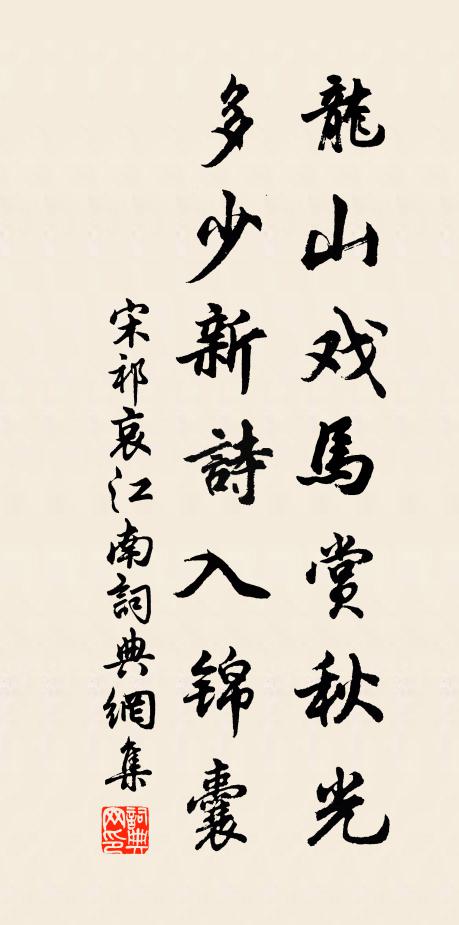 龍山戏馬赏秋光
多少新詩入锦囊
宋祁哀江南詞典網集
詞典
网印